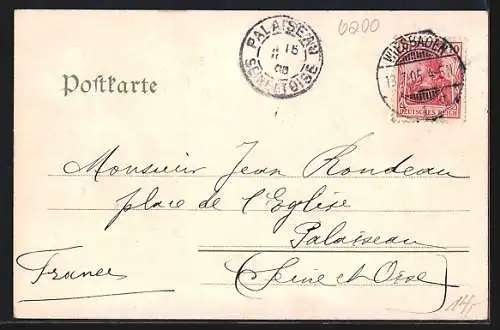 6200
PALAISEAU
15
SEINE-ET-OISE
WIESBADEN
10
DEUTSCHES REICH
Postkarte
Monsieur Jean Rondeau
place de l'Eglise
Palaiseau
France
(Seine et Oise)